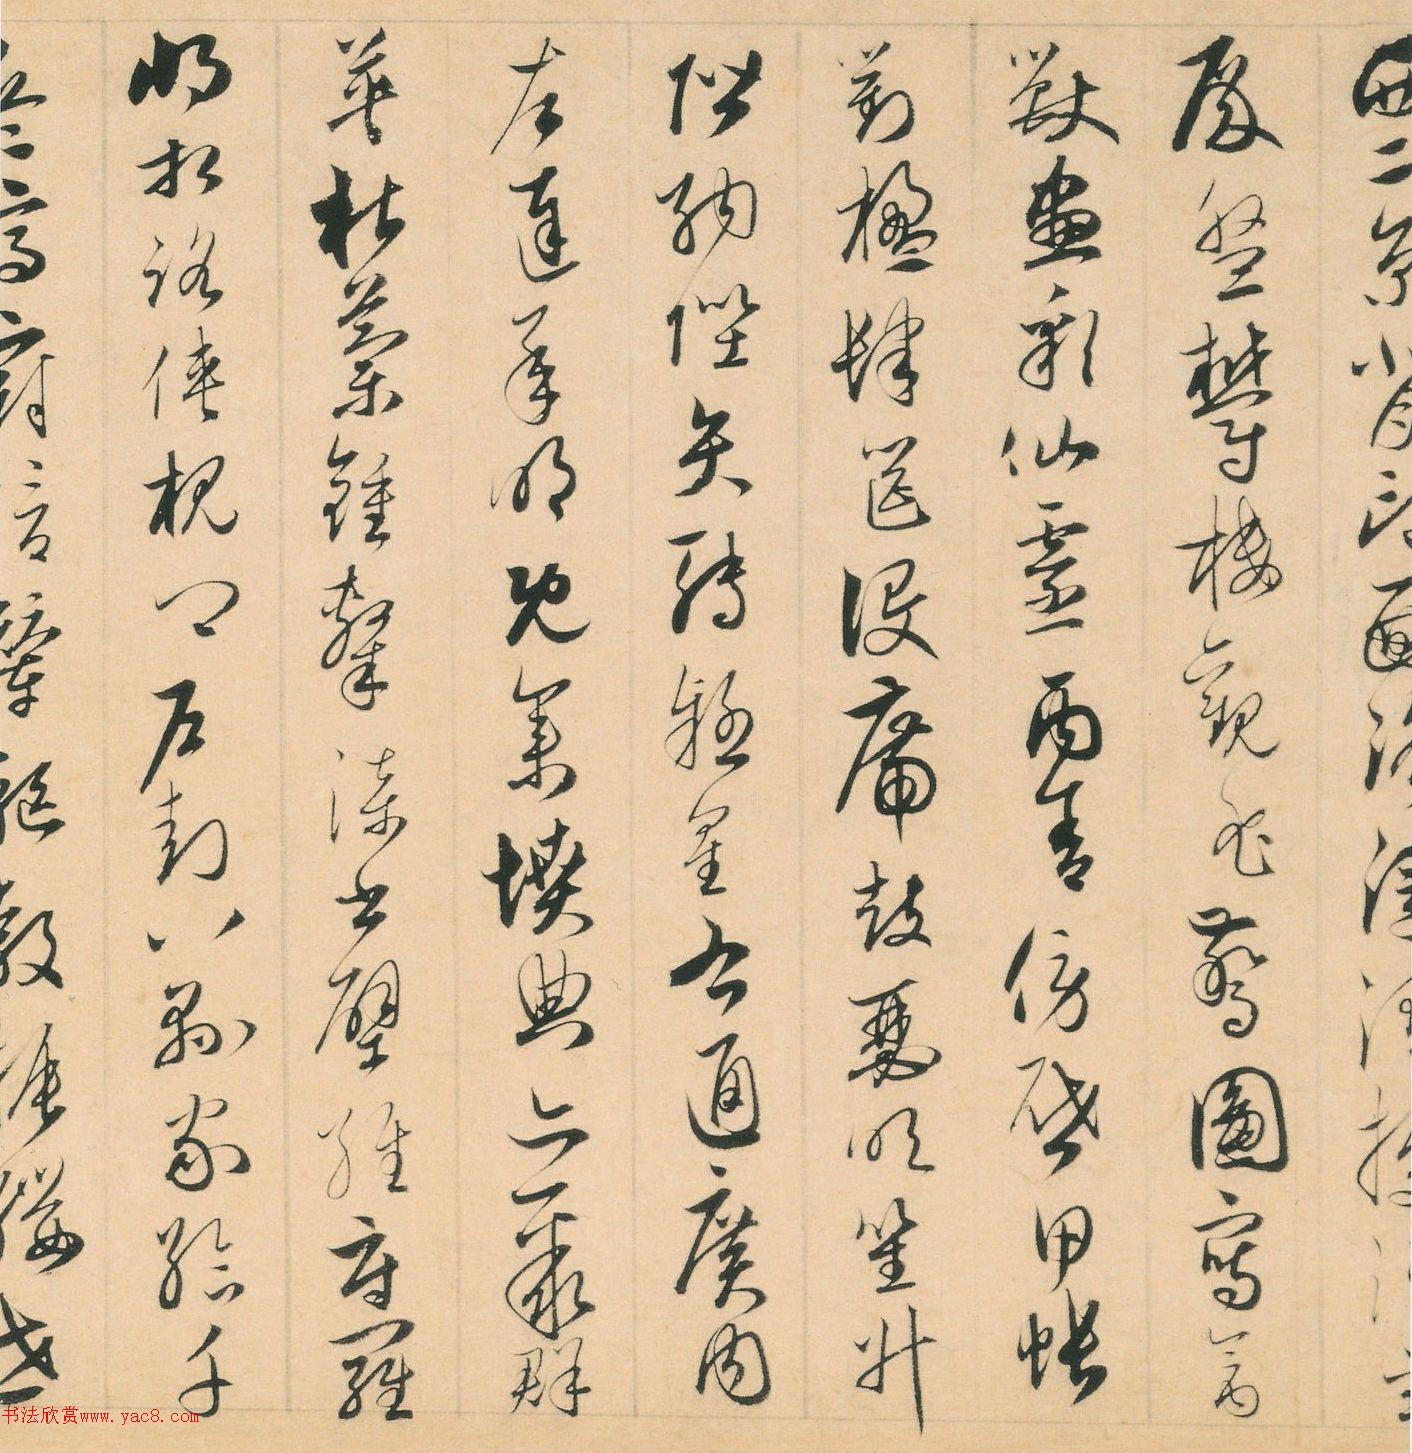 西二京背邙面洛浮渭據涇宮
殿盤鬱樓觀飛驚圖寫禽
獸畫彩仙靈丙舍傍啟甲帳
對楹肆筵設席鼓瑟吹笙升
階納陛弁轉疑星右通廣內
左達承明既集墳典亦聚群
英杜稾鍾隸漆書壁經府羅
將相路俠槐卿戶封八縣家給千
兵高冠陪輦驅轂振纓世
书法欣赏www.yac8.com